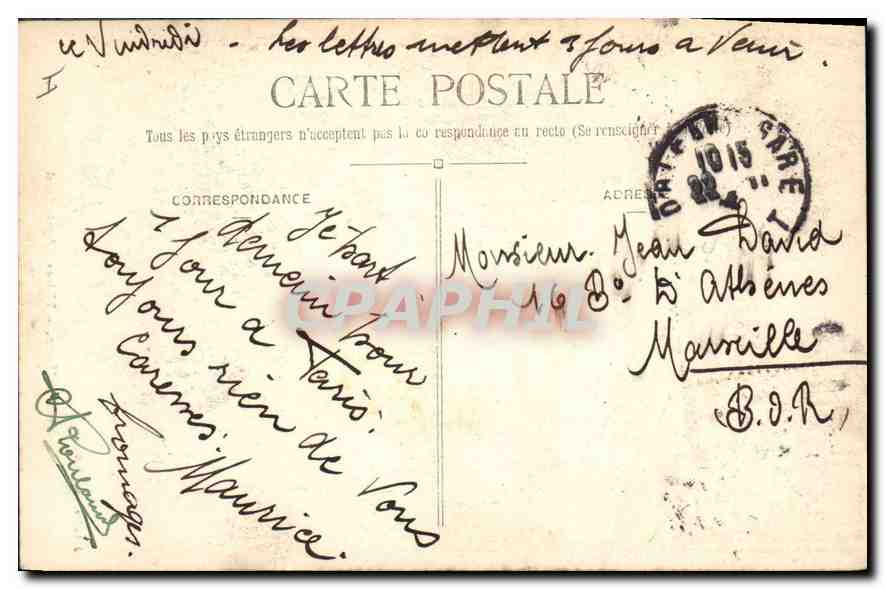 ce Vendredi - Les lettres mettent 2 jours a Venir.
CARTE POSTALE
Tous les pays étrangers n'acceptent pas la co respondance au recto (Se renseigner
GARE
10 15
22
CORRESPONDANCE
ADRES
Je part
demain pour
1 Jour a Paris.
toujours rien de Vous
Caresses. Maurice.
fromages.
Monsieur Jean David
16 Bd D'Athènes
Marseille
(B.d.R)
CPAPHIL